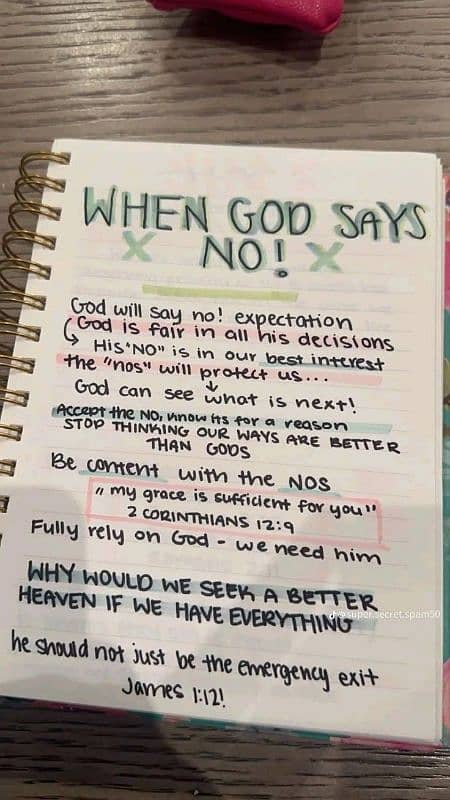 WHEN GOD SAYS
X NO! X
God will say no! expectation
God is fair in all his decisions
↳ HIS "NO" is in our best interest
the "nos" will protect us...
God can see what is next!
Accept the NO, know its for a reason
STOP THINKING OUR WAYS ARE BETTER
THAN GODS
Be content with the NOS
"my grace is sufficient for you"
2 CORINTHIANS 12:9
Fully rely on God - we need him
WHY WOULD WE SEEK A BETTER
HEAVEN IF WE HAVE EVERYTHING
@super.secret.spam50
he should not just be the emergency exit
James 1:12!